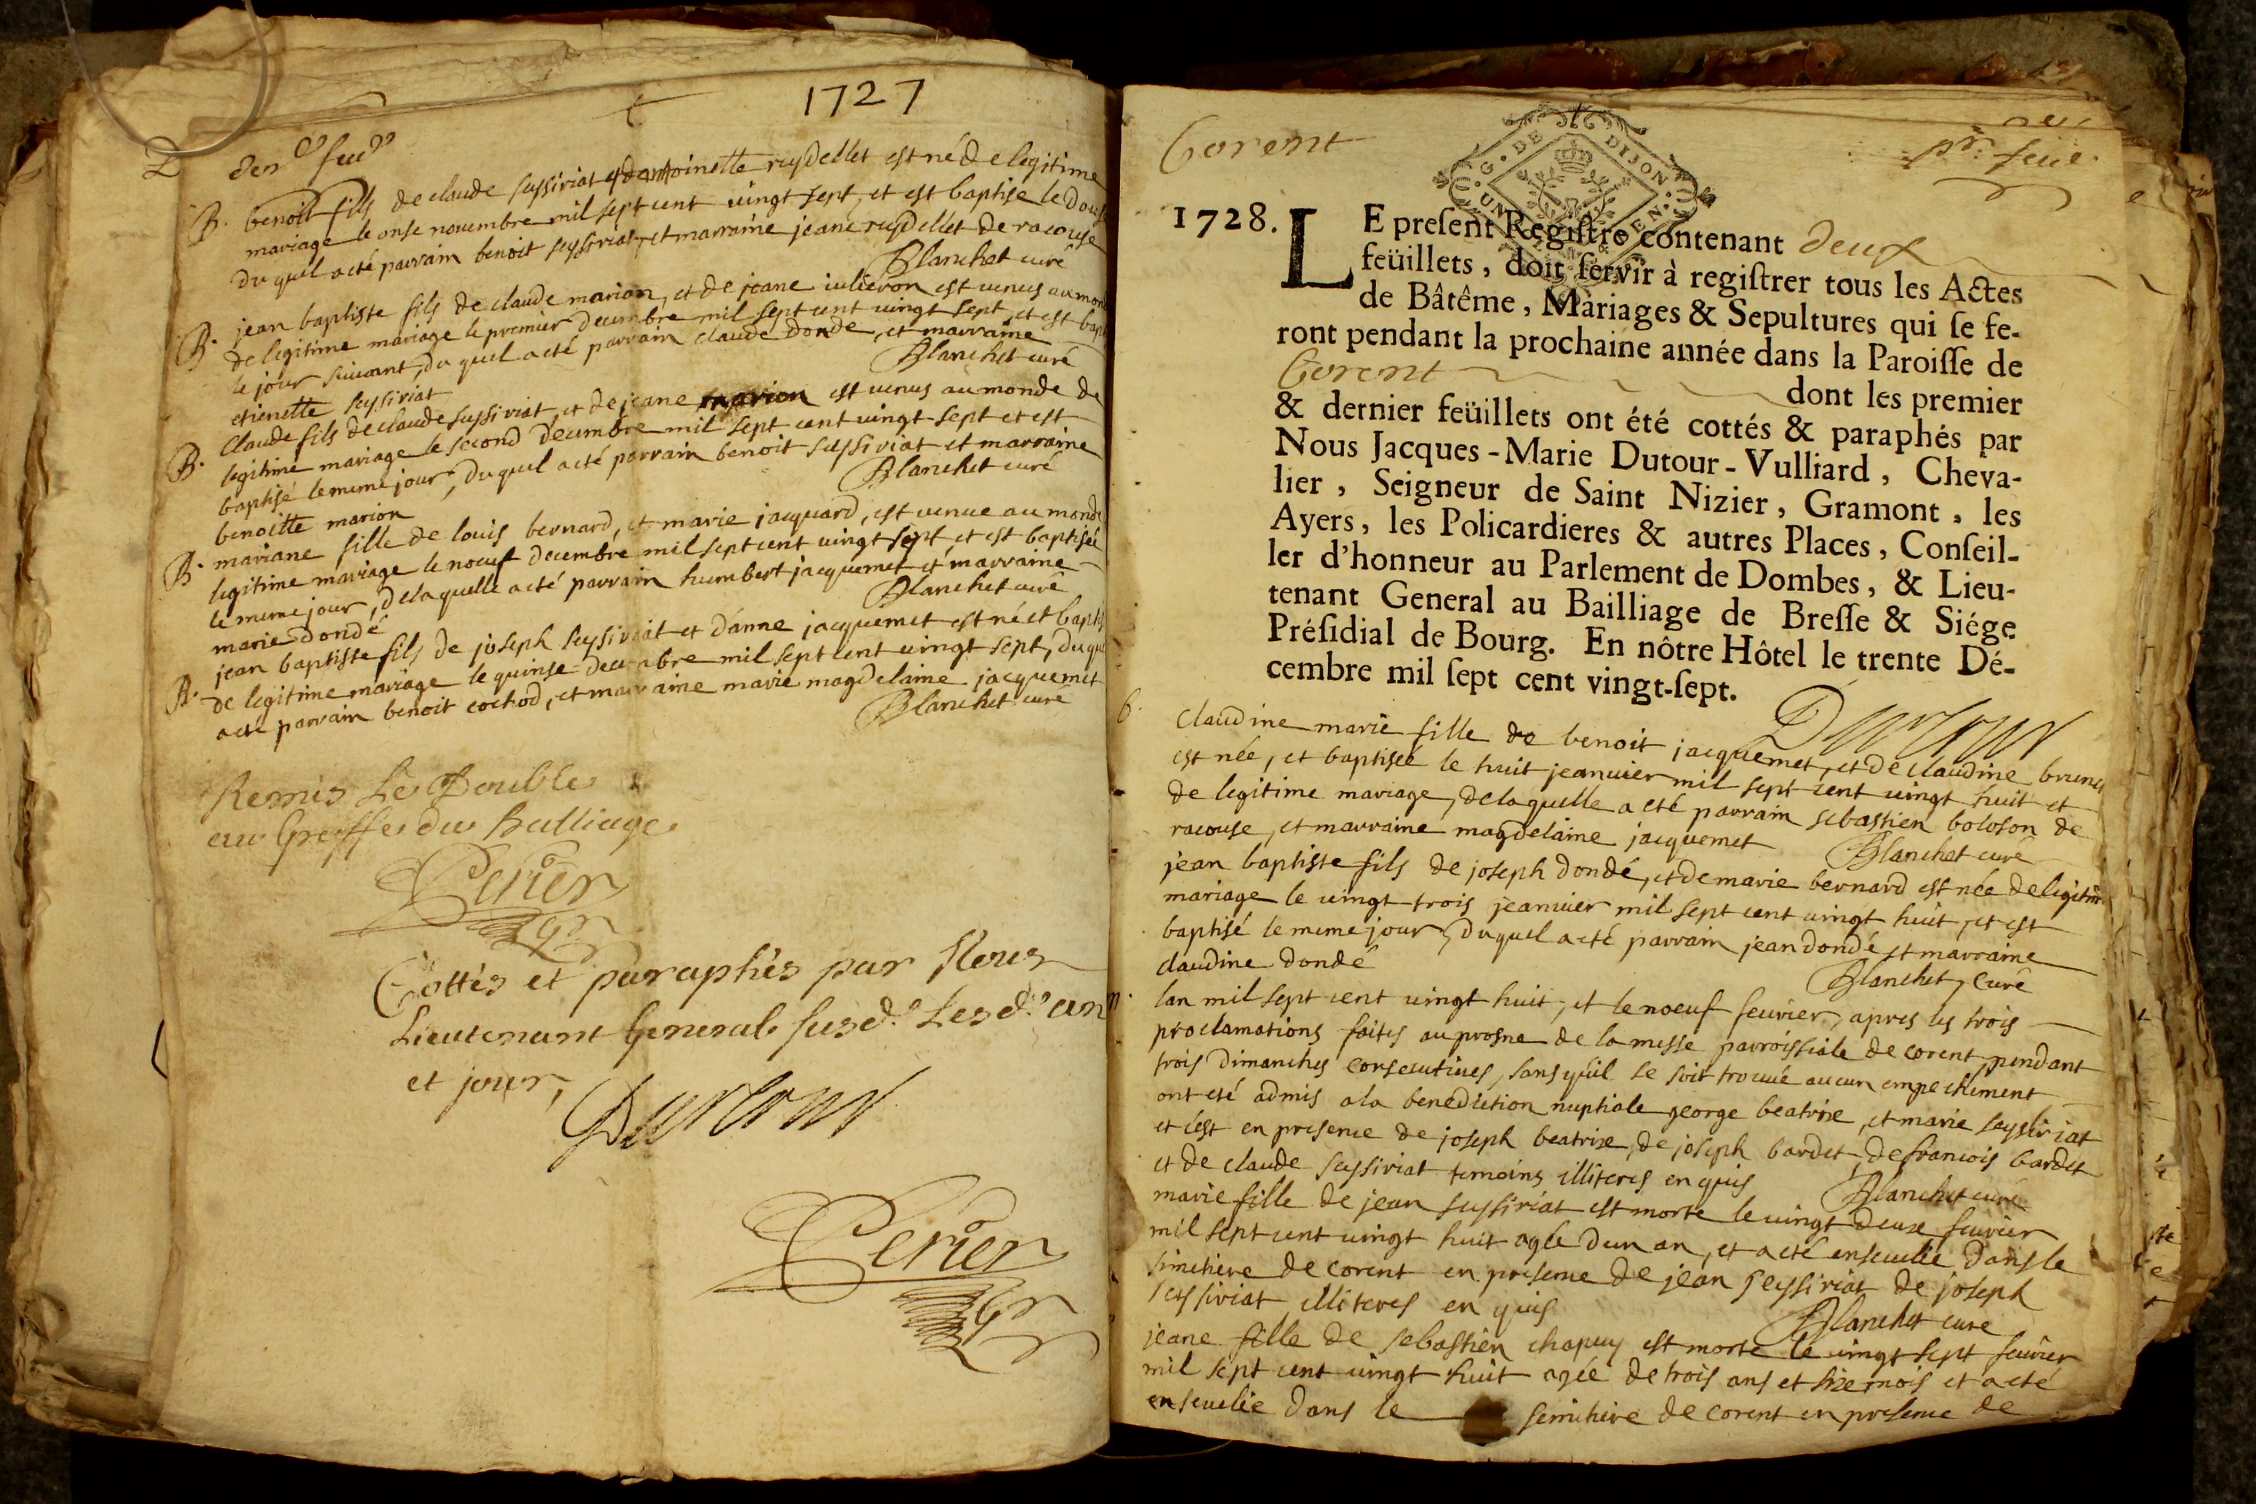 1727
B. benoit fils de claude seyssiriat et dantoinette ruydellet est né de legitime
mariage le onse novembre mil sept cent vingt sept, et est baptise le
du quel a eté parrain benoit seyssiriat, et marraine jeane ruydellet de racouse
Blanchet curé
B. jean baptiste fils de claude marion, et de jeane iulieron est venus au
de legitime mariage le premier decembre mil sept cent vingt sept, et est
le jour suivant, du quel a eté parrain claude donde, et marraine
etienette seyssiriat Blanchet curé
B. Claude fils de claude seyssiriat, et de jeane marion est venus au monde de
legitime mariage le second decembre mil sept cent vingt sept et est
baptisé le meme jour, du quel a eté parrain benoit seyssiriat et marraine
benoitte marion Blanchet curé
B. mariane fille de louis bernard, et marie jacquard, est venue au monde
legitime mariage le noeuf decembre mil sept cent vingt sept, et est baptisée
le meme jour, de laquelle a eté parrain humbert jacquemet et marraine
marie dondé Blanchet curé
B. jean baptiste fils de joseph seyssiriat et danne jacquemet est né et
de legitime mariage le quinse decembre mil sept cent vingt sept, du
a eté parrain benoit cochod, et marraine marie magdelaine jacquemet
Blanchet curé
Remis Le Double
au Greffe du Balliage
Perier
Cottés et paraphés par Nous
Lieutenant General susd. Lesd. an
et jour,
Dutour
Perier
Corent
pr. feüe.
G. DE DIJON
1728. LE present Registre contenant deux
feüillets, doit servir à registrer tous les Actes
de Bâtême, Mariages & Sepultures qui se fe-
ront pendant la prochaine année dans la Paroisse de
Corent dont les premier
& dernier feüillets ont été cottés & paraphés par
Nous Jacques-Marie Dutour-Vulliard, Cheva-
lier, Seigneur de Saint Nizier, Gramont, les
Ayers, les Policardieres & autres Places, Conseil-
ler d'honneur au Parlement de Dombes, & Lieu-
tenant General au Bailliage de Bresse & Siége
Présidial de Bourg. En nôtre Hôtel le trente Dé-
cembre mil sept cent vingt-sept.
Dutour
claudine marie fille de benoit jacquemet, et de claudine
est née, et baptisée le huit jeanvier mil sept cent vingt huit et
de legitime mariage, de laquelle a eté parrain sebastien boloson de
racouse, et marraine magdelaine jacquemet Blanchet curé
jean baptiste fils de joseph dondé, et de marie bernard est née de
mariage le vingt trois jeanvier mil sept cent vingt huit, et est
baptisé le meme jour, duquel a eté parrain jean dondé et marraine
claudine dondé Blanchet, Curé
lan mil sept cent vingt huit, et le noeuf feuvrier, apres les trois
proclamations faites au prosne de la messe parroissiale de corent pendant
trois dimanches consecutives, sans quil se soit trouvé aucun empechement
ont eté admis a la benediction nuptiale george beatrixe, et marie seyssiriat
et cest en presence de joseph beatrixe, de joseph bardet, de francois bardet
et de claude seyssiriat temoins illiteres enquis Blanchet curé
marie fille de jean seyssiriat est morte le vingt deux feuvrier
mil sept cent vingt huit agée dun an, et a eté ensevelie dans le
simetiere de corent en presence de jean seyssiriat de joseph
seyssiriat illiteres en quis Blanchet curé
jeane fille de sebastien chapuy est morte le vingt sept feuvrier
mil sept cent vingt huit agée de trois ans et sixe mois et a eté
ensevelie dans le semitiere de corent en presence de